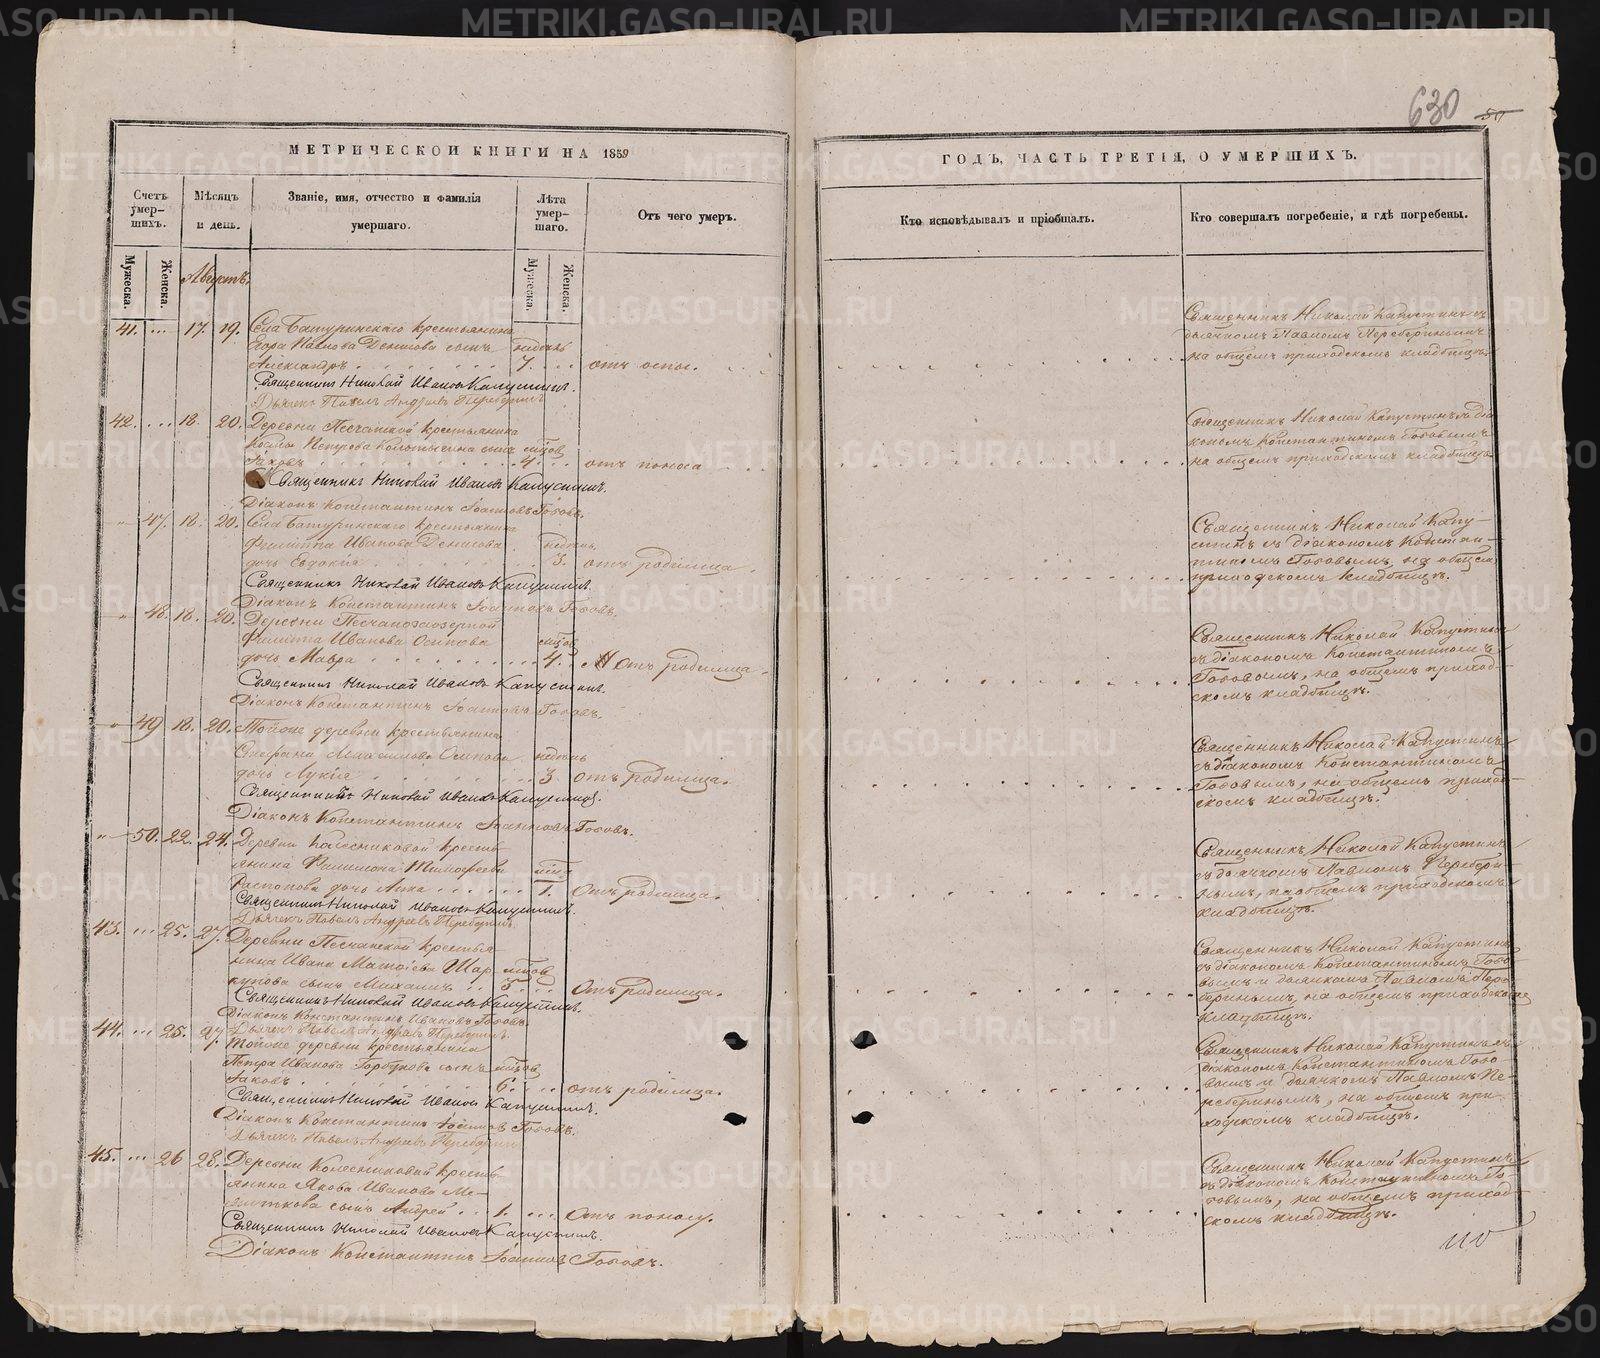 630
50
МЕТРИЧЕСКОЙ КНИГИ НА 1859
ГОДЪ, ЧАСТЬ ТРЕТІЯ, О УМЕРШИХЪ.
Счетъ умер-шихъ.
Мѣсяцъ и день.
Званіе, имя, отчество и фамилія умершаго.
Лѣта умер-шаго.
Отъ чего умеръ.
Кто исповѣдывалъ и пріобщалъ.
Кто совершалъ погребеніе, и гдѣ погребены.
Мужеска.
Женска.
Августъ.
Мужеска.
Женска.
41. ... 17. 19. Села Батуринскаго крестьянина
Егора Павлова Денисова сынъ недѣль
Александръ 7. отъ оспы.
Священникъ Николай Ивановъ Капустинъ.
Дьячекъ Павелъ Андреевъ Переберинъ
Священникъ Николай Капустинъ съ
дьячкомъ Павломъ Переберинымъ
на общемъ приходскомъ кладбищѣ.
42. ... 18. 20. Деревни Песчанской крестьянина
Козмы Петрова сынъ мѣсцов
Іаковъ 4. отъ поноса
Священникъ Николай Ивановъ Капустинъ.
Діаконъ Константинъ Іоанновъ Гобовъ.
Священникъ Николай Капустинъ съ діа
кономъ Константиномъ Гобовымъ
на общемъ приходскомъ кладбищѣ
" 47. 18. 20. Села Батуринскаго крестьянина
Филиппа Иванова Денисова недѣль
дочь Евдокія 3. отъ родимца.
Священникъ Николай Ивановъ Капустинъ.
Діаконъ Константинъ Іоанновъ Гобовъ.
Священникъ Николай Капу-
стинъ съ діакономъ Констан-
тиномъ Гобовымъ, на общемъ
приходскомъ кладбищѣ.
" 48. 18. 20. Деревни Песчаноозерной
Филиппа Иванова Осипова мѣсцов
дочь Мавра 4. Отъ родимца.
Священникъ Николай Ивановъ Капустинъ.
Діаконъ Константинъ Іоанновъ Гобовъ.
Священникъ Николай Капустинъ
съ діакономъ Константиномъ
Гобовымъ, на общемъ приход-
скомъ кладбищѣ.
" 49. 18. 20. Тойже деревни крестьянина
Михаилова Осипова недѣль
дочь Лукія 3. отъ родимца.
Священникъ Николай Ивановъ Капустинъ.
Діаконъ Константинъ Іоанновъ Гобовъ.
Священникъ Николай Капустинъ
съ діакономъ Константиномъ
Гобовымъ, на общемъ приход-
скомъ кладбищѣ.
" 50. 22. 24. Деревни Колесниковой кресть-
янина Филимона Тимофеева
Распопова дочь Анна 1. Отъ родимца.
Священникъ Николай Ивановъ Капустинъ.
Дьячекъ Павелъ Андреевъ Переберинъ.
Священникъ Николай Капустинъ
съ дьячкомъ Павломъ Перебери-
нымъ, на общемъ приходскомъ
кладбищѣ.
43. ... 25. 27. Деревни Песчанской крестья-
нина Ивана Матвіева Шар- мѣсцов
кунова сынъ Михаилъ 3. Отъ родимца.
Священникъ Николай Ивановъ Капустинъ.
Діаконъ Константинъ Ивановъ Гобовъ.
Дьячекъ Павелъ Андреевъ Переберинъ.
Священникъ Николай Капустинъ
съ діакономъ Константиномъ Гобо-
вымъ и дьячкомъ Павломъ Пере-
беринымъ, на общемъ приходскомъ
кладбищѣ.
44. ... 25. 27. Тойже деревни крестьянина
Петра Иванова Горбунова сынъ мѣсцов
Іаковъ 6. отъ родимца.
Священникъ Николай Ивановъ Капустинъ.
Діаконъ Константинъ Іоанновъ Гобовъ.
Дьячекъ Павелъ Андреевъ Переберинъ
Священникъ Николай Капустинъ съ
діакономъ Константиномъ Гобо-
вымъ и дьячкомъ Павломъ Пе-
реберинымъ, на общемъ при-
ходскомъ кладбищѣ.
45. ... 26 28. Деревни Колесниковой кресть-
янина Якова Иванова
сынъ Андрей 1. отъ поносу.
Священникъ Николай Ивановъ Капустинъ.
Діаконъ Константинъ Іоанновъ Гобовъ.
Священникъ Николай Капустинъ
съ діакономъ Константиномъ Го-
бовымъ, на общемъ приход-
скомъ кладбищѣ.
METRIKI.GASO-URAL.RU